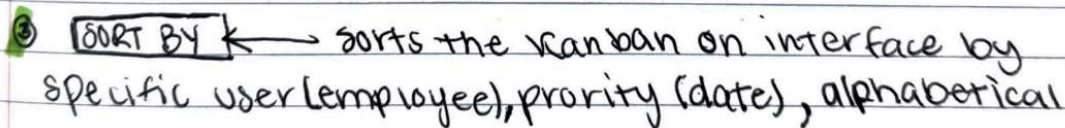 ③ SORT BY ⟷ sorts the kanban on interface by
specific user (employee), prority (date), alphabetical